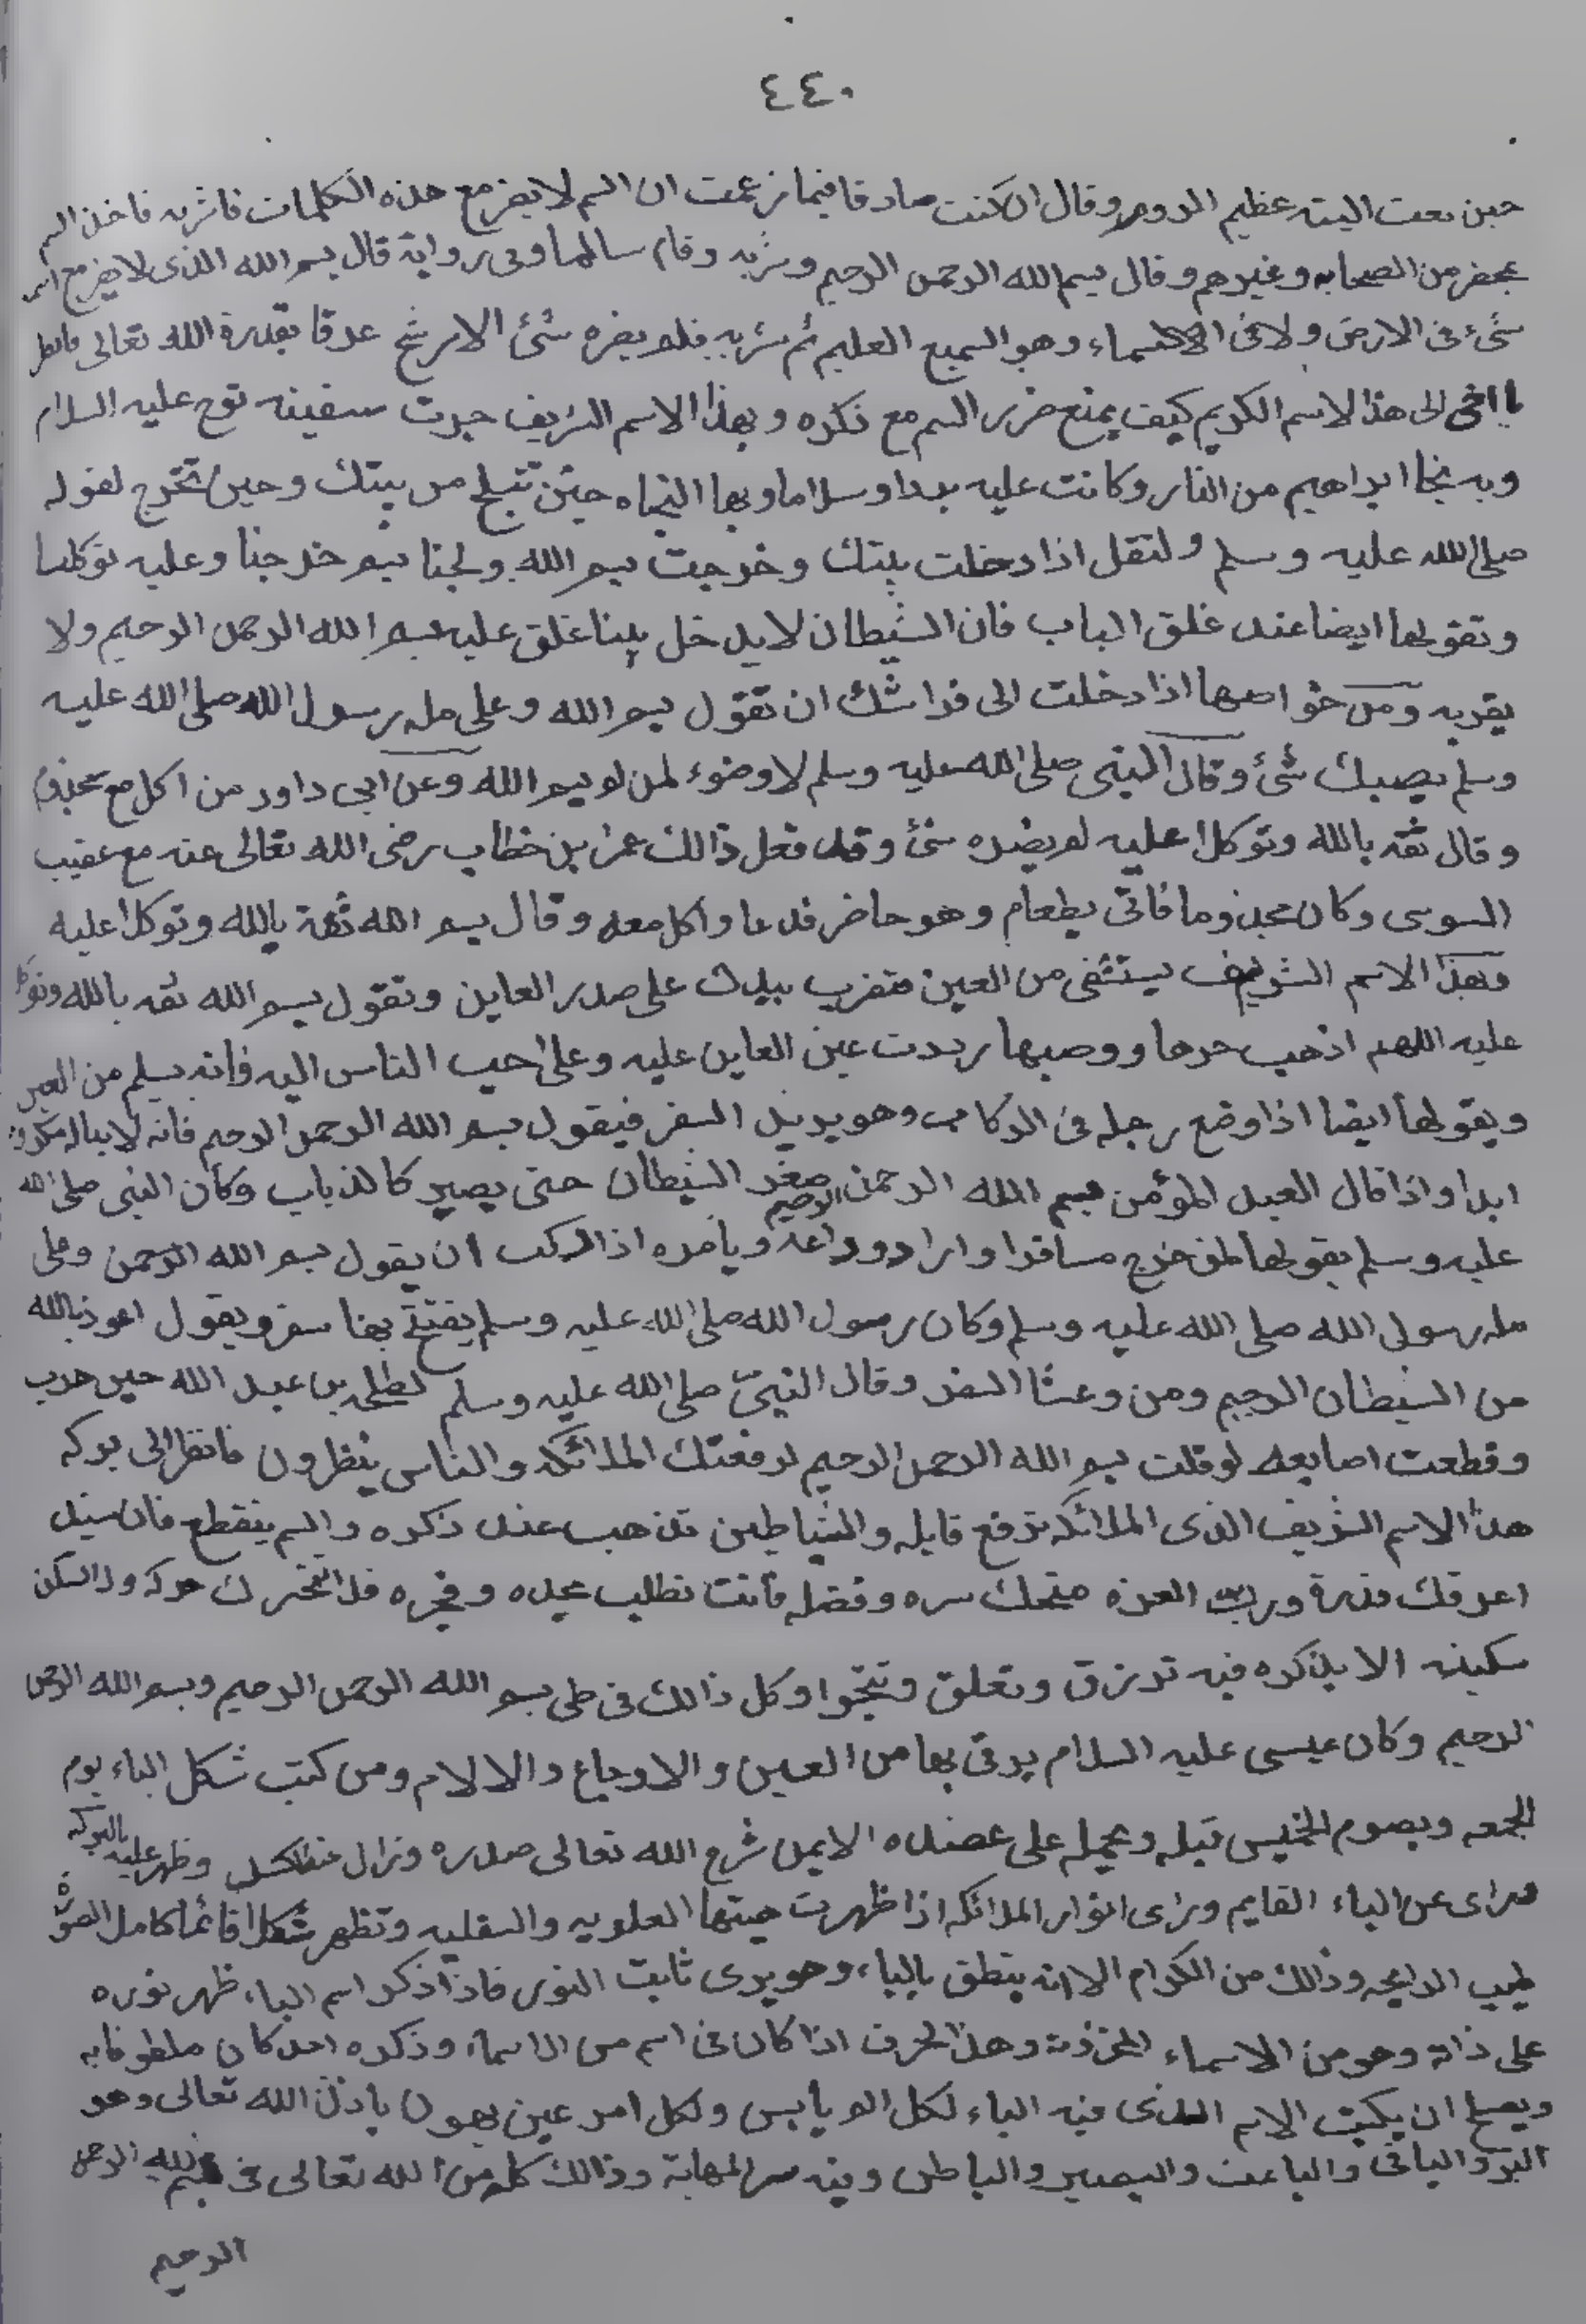 ٤٤٠
حين بعث اليه عظيم الروم وقال ان كنت صادقا فيما زعمت ان السم لا يضر مع هذه الكلمات فاشربه فاخذ السم
بمحضر من الصحابه وغيرهم وقال بسم الله الرحمن الرحيم وشربه وقام سالما وفى رواية قال بسم الله الذى لا يضر مع اسمه
شئ فى الارض ولا فى السماء وهو السميع العليم ثم شربه فلم يضره شئ الا رشح عرقا بقدرة الله تعالى فانظر
يا اخى الى هذا الاسم الكريم كيف يمنع ضرر السم مع ذكره وبهذا الاسم الشريف جرت سفينه نوح عليه السلام
وبه نجا ابراهيم من النار وكانت عليه بردا وسلاما وبها النجاه حين تلج من بيتك وحين تخرج لقوله
صلى الله عليه وسلم ولتقل اذا دخلت بيتك وخرجت بسم الله ولجنا بسم خرجنا وعليه توكلنا
وتقولها ايضا عند غلق الباب فان الشيطان لا يدخل بيتا غلق عليه بسم الله الرحمن الرحيم ولا
يقربه ومن خواصها اذا دخلت الى فراشك ان تقول بسم الله وعلى مله رسول الله صلى الله عليه
وسلم يصبك شئ وقال النبى صلى الله عليه وسلم لا وضوء لمن لم يسم الله وعن ابى داود من اكل مع مجذوم
وقال ثقه بالله وتوكلا عليه لم يضره شئ وقد فعل ذالك عمر بن خطاب رضى الله تعالى عنه مع عقيب
السوسى وكان مجذوما فاتى بطعام وهو حاضر فدعا واكل معه وقال بسم الله ثقة بالله وتوكلا عليه
وبهذا الاسم الشريف يستشفى من العين فتضرب بيدك على صدر العاين وتقول بسم الله ثقه بالله وتوكلا
عليه اللهم اذهب حرها ووصبها رددت عين العاين عليه وعلى احب الناس اليه فانه يسلم من العين
ويقولها ايضا اذا وضع رجله فى الركاب وهو يريد السفر فيقول بسم الله الرحمن الرحيم فانه لا يناله مكروه
ابدا واذا قال العبد المؤمن بسم الله الرحمن الرحيم صغر الشيطان حتى يصير كالذباب وكان النبى صلى الله
عليه وسلم يقولها لمن خرج مسافرا واراد وداعه ويأمره اذا ركب ان يقول بسم الله الرحمن وعلى
مله رسول الله صلى الله عليه وسلم وكان رسول الله صلى الله عليه وسلم يفتتح بها سفره ويقول اعوذ بالله
من الشيطان الرجيم ومن وعثا السفر وقال النبى صلى الله عليه وسلم لطلحه بن عبد الله حين هرب
وقطعت اصابعه لو قلت بسم الله الرحمن الرحيم لرفعتك الملائكه والناس ينظرون فانظر الى بركه
هذا الاسم الشريف الذى الملائكه ترفع قايله والشياطين تذهب عند ذكره والسم ينقطع فان سيد
اعرقك قدرة ورب العزه منحك سره وفضله فانت تطلب مجده وفخره فلا تتحرك حركه ولا تسكن
سكينه الا بذكره فبه ترزق وتعلق وتنجوا وكل ذالك فى طى بسم الله الرحمن الرحيم وبسم الله الرحمن
الرحيم وكان عيسى عليه السلام يرقى بها من العين والاوجاع والالام ومن كتب شكل الباء يوم
الجمعه ويصوم الخميس قبله ويحمله على عضده الايمن شرح الله تعالى صدره وزال الكسل وظهر عليه بالبركه
عن الباء القايم وترى انوار الملائكه اذا ظهرت العلويه والسفليه وتظهر شكلا قائما كامل الصوره
طيب الرايحه وذلك من الكرام الا انه ينطق بالباء وهو يرى ثابت النور فاذا ذكر اسم الباء ظهر نوره
على ذاته وهو من الاسماء المخزونة وهذا الحرف اذا كان فى اسم من الاسماء وذكره احد كان ملطوفا به
ويصلح ان يكتب الاسم الذى فيه الباء لكل يابس ولكل امر عين يهون باذن الله تعالى وهو
البر والباقى والباعث والبصير والباطن وفيه سر المهابة وذالك كله من الله تعالى فى بسم الله الرحمن
الرحيم